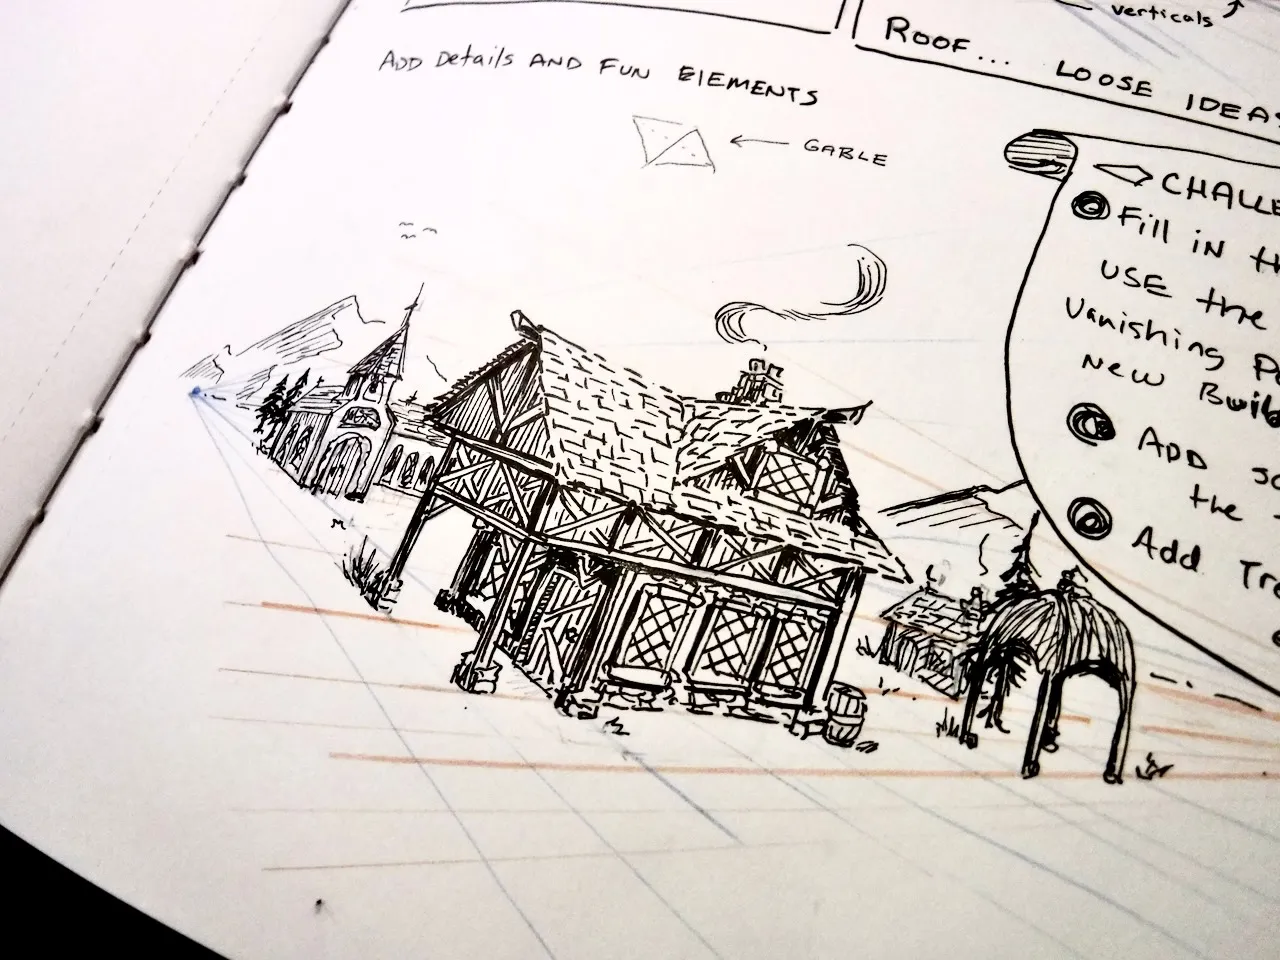 verticals
ROOF... LOOSE IDEAS
ADD Details AND FUN ELEMENTS
GABLE
CHALLE
Fill iN th
USE the
Vanishing Po
New Buil
ADD
the
Add Tre